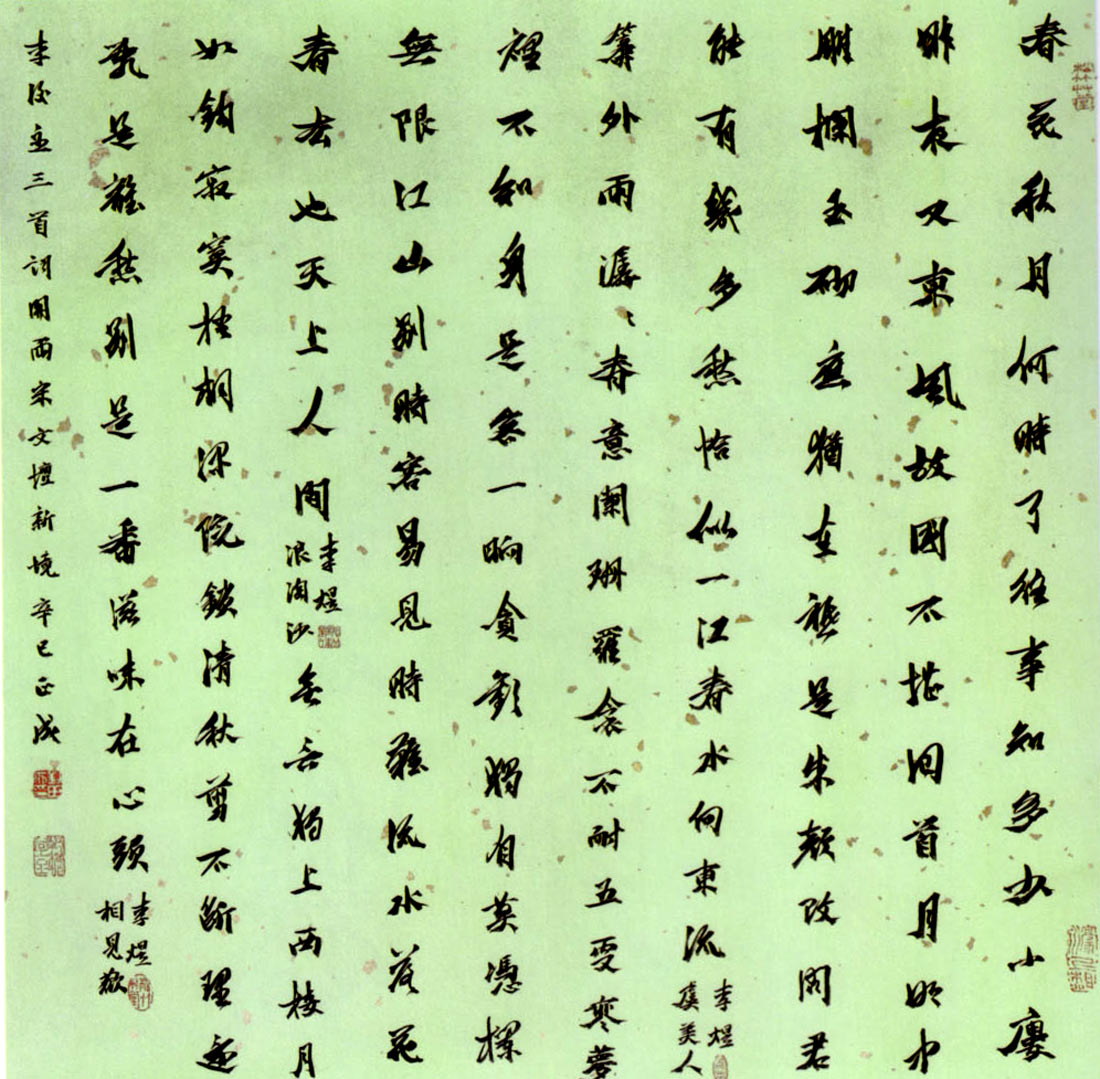 春花秋月何時了往事知多少小廔
昨夜又東風故國不堪回首月明中
雕欄玉砌應猶在祗是朱顏改問君
能有幾多愁恰似一江春水向東流
李煜
虞美人
簾外雨潺〻春意闌珊羅衾不耐五更寒夢
裡不知身是客一晌貪歡獨自莫憑欄
無限江山別時容易見時難流水落花
春去也天上人間
李煜
浪淘沙
無言獨上西樓月
如鉤寂寞梧桐深院鎖清秋剪不斷理還
亂是離愁別是一番滋味在心頭
李煜
相見歡
李後主三首詞開兩宋文壇新境辛巳正成